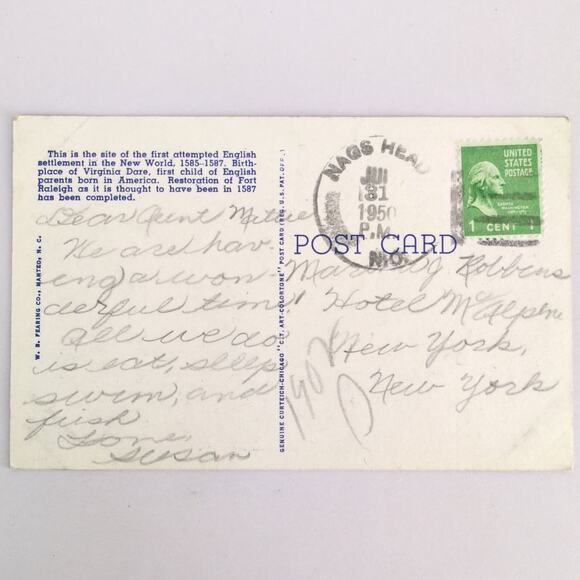 This is the site of the first attempted English
settlement in the New World, 1585-1587. Birth-
place of Virginia Dare, first child of English
parents born in America. Restoration of Fort
Raleigh as it is thought to have been in 1587
has been completed.
Dear Aunt Mattie
We are hav-
ing a won-
derful time!
All we do
is eat, sleep
swim, and
fish
Love,
Susan
W. B. FEARING CO., MANTEO, N. C.
GENUINE CURTEICH-CHICAGO "C.T. ART-COLORTONE" POST CARD (REG. U.S. PAT. OFF.)
POST CARD
NAGS HEAD
31
1950
P.M.
N.C.
UNITED
STATES
POSTAGE
GEORGE
WASHINGTON
1 CENT 1
Robbins
Hotel McAlpin
New York,
New York